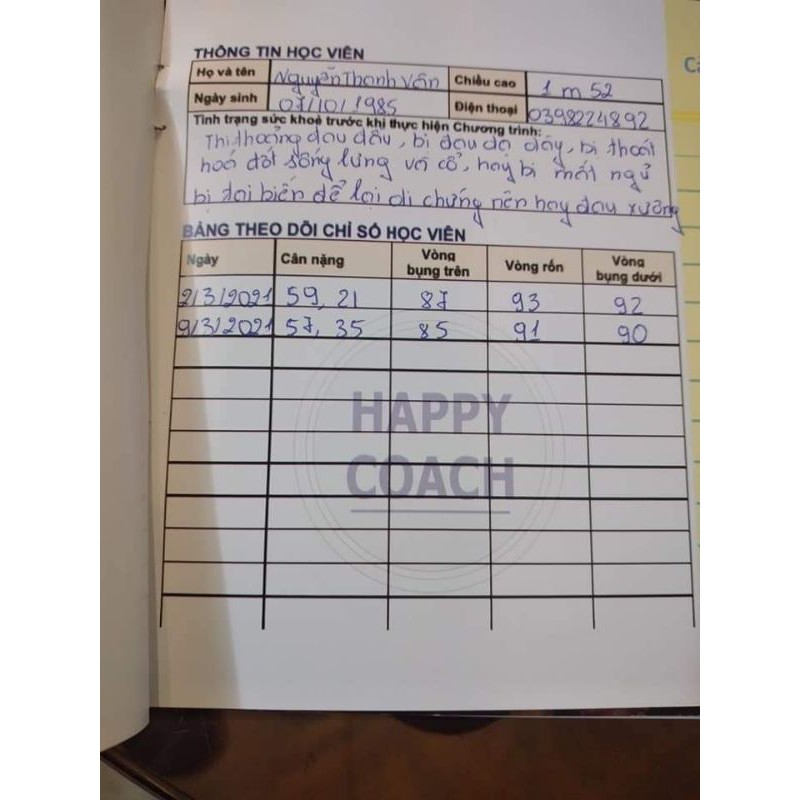 THÔNG TIN HỌC VIÊN
Họ và tên Nguyễn Thanh Vân Chiều cao 1 m 52
Ngày sinh 07/10/1985 Điện thoại 0398224892
Tình trạng sức khoẻ trước khi thực hiện Chương trình:
Thi thoảng đau đầu, bị đau dạ dày, bị thoát
hoá đốt sống lưng và cổ, hay bị mất ngủ
bị tai biến để lại di chứng nên hay đau xương
BẢNG THEO DÕI CHỈ SỐ HỌC VIÊN
Ngày Cân nặng Vòng bụng trên Vòng rốn Vòng bụng dưới
2/3/2021 59,21 87 93 92
9/3/2021 57,35 85 91 90
HAPPY
COACH